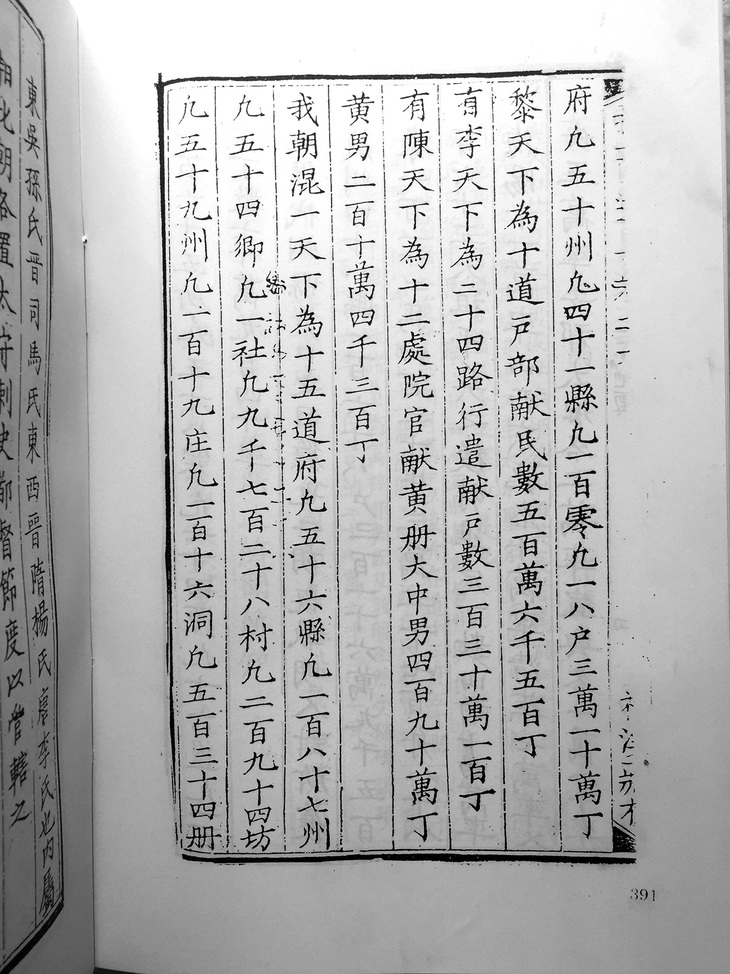 府凢五十州凢四十一縣凢一百零凢一八户三萬一十萬丁
黎天下為十道戸部献民數五百萬六千五百丁
有李天下為二十四路行遣献戸數三百三十萬一百丁
有陳天下為十二處院官献黄册大中男四百九十萬丁
黄男二百十萬四千三百丁
我朝混一天下為十五道府凢五十六縣凢一百八十七州
凢五十四鄉凢一社凢九千七百二十八村凢二百九十四坊
凢五十九州凢一百十九庄凢一百十六洞凢五百三十四册
391
東吳孫氏晉司馬氏東西晉隋楊氏唐李氏也内屬
北朝各置太守刺史都督節度以當轄之